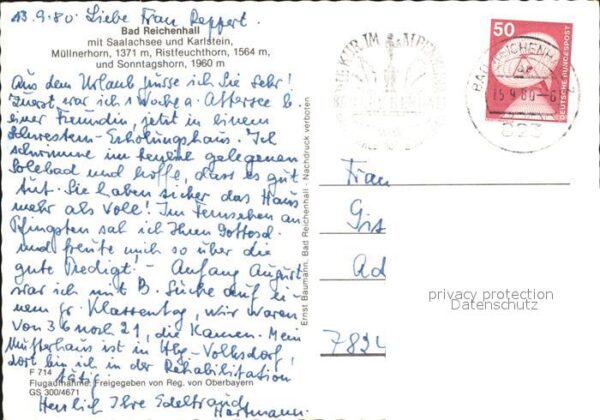 13.9.80. Liebe Frau Reppert.
Bad Reichenhall
mit Saalachsee und Karlstein,
Müllnerhorn, 1371 m, Ristfeuchthorn, 1564 m,
und Sonntagshorn, 1960 m
Aus dem Urlaub grüsse ich Sie sehr!
Zuerst war ich 1 Woche a. Attersee b.
einer Freundin, jetzt in einem
Schwestern-Erholungshaus. Ich
schwimme im gelegenen
Solebad und hoffe, dass es gut
tut. Sie haben sicher das Haus
mehr als voll! Im Fernsehen an
Pfingsten sah ich Ihren Gottesd.
und freute mich so über die
gute Predigt. - Anfang August
war ich mit B. Sücke auf ei-
nem gr. Klassentag, wir waren
von 36 noch 21, die kamen. Mein
Mutterhaus ist in Hbg-Volksdorf,
dort bin ich in der Rehabilitation
tätig.
F 714
Flugaufnahme. Freigegeben von Reg. von Oberbayern
GS 300/4671
Herzlich Ihre Edeltraud
Hartmann.
Ernst Baumann, Bad Reichenhall - Nachdruck verboten
KUR IM ALPEN
50
DEUTSCHE BUNDESPOST
BAD REICHENHALL
15.9.80-6
823
Frau
Gis
Ad
7824
privacy protection
Datenschutz